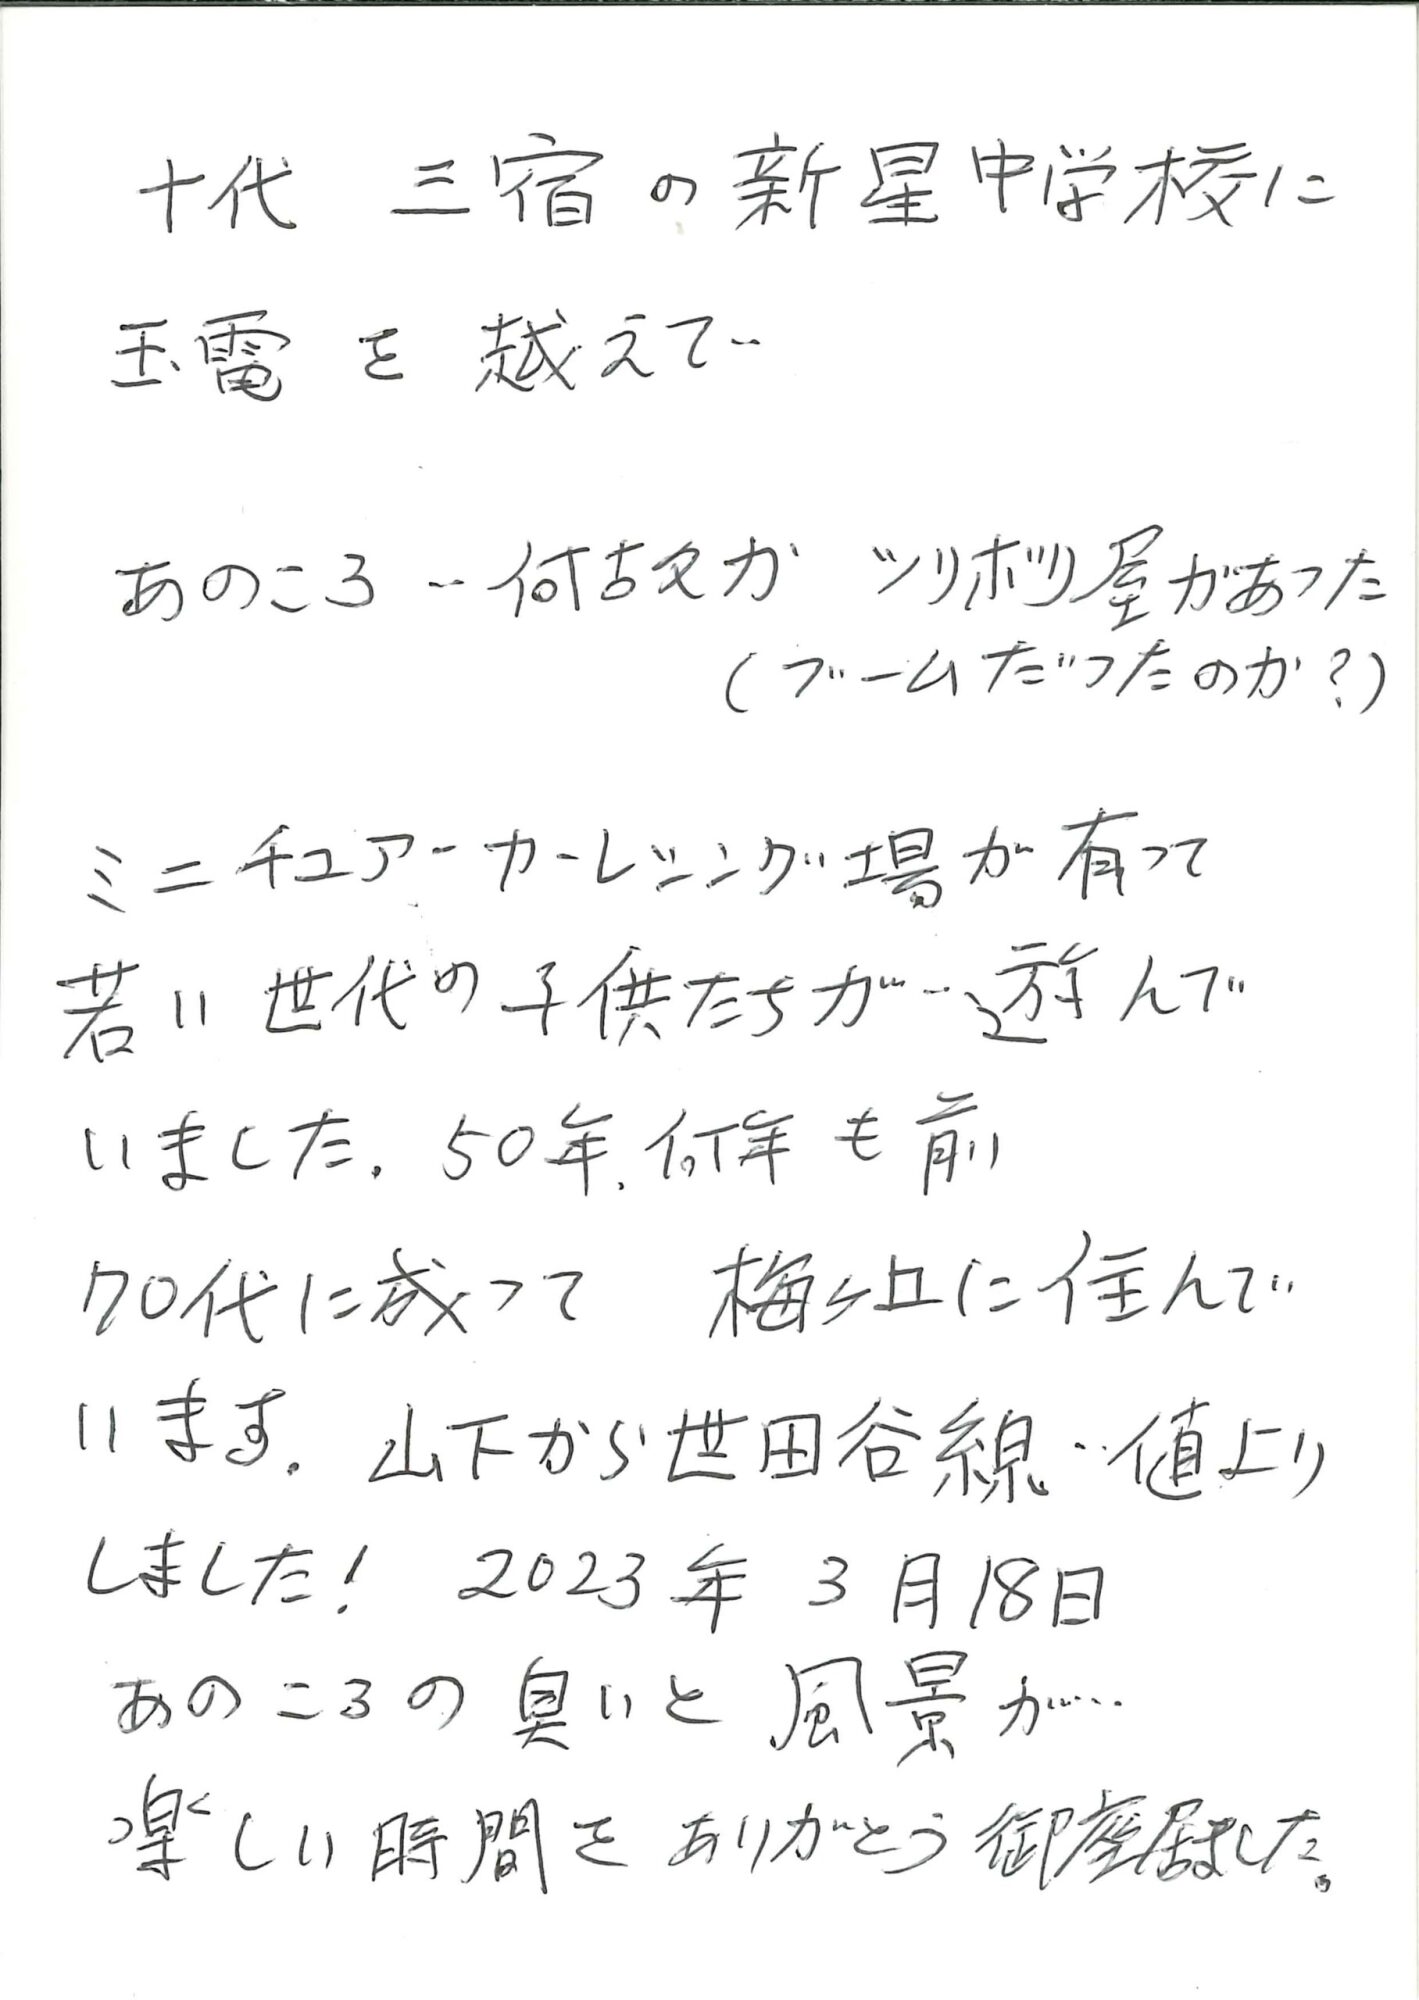 十代 三宿の新星中学校に
玉電を越えて‥
あのころ‥何故か ツリボリ屋があった
(ブームだったのか?)
ミニチュアーカーレーシング場が有って
若い世代の子供たちが‥遊んで
いました. 50年.何年も前
70代に成って 梅ヶ丘に住んで
います. 山下から世田谷線‥値上り
しました! 2023年 3月18日
あのころの臭いと風景が‥‥
楽しい時間を ありがとう御座居ました。